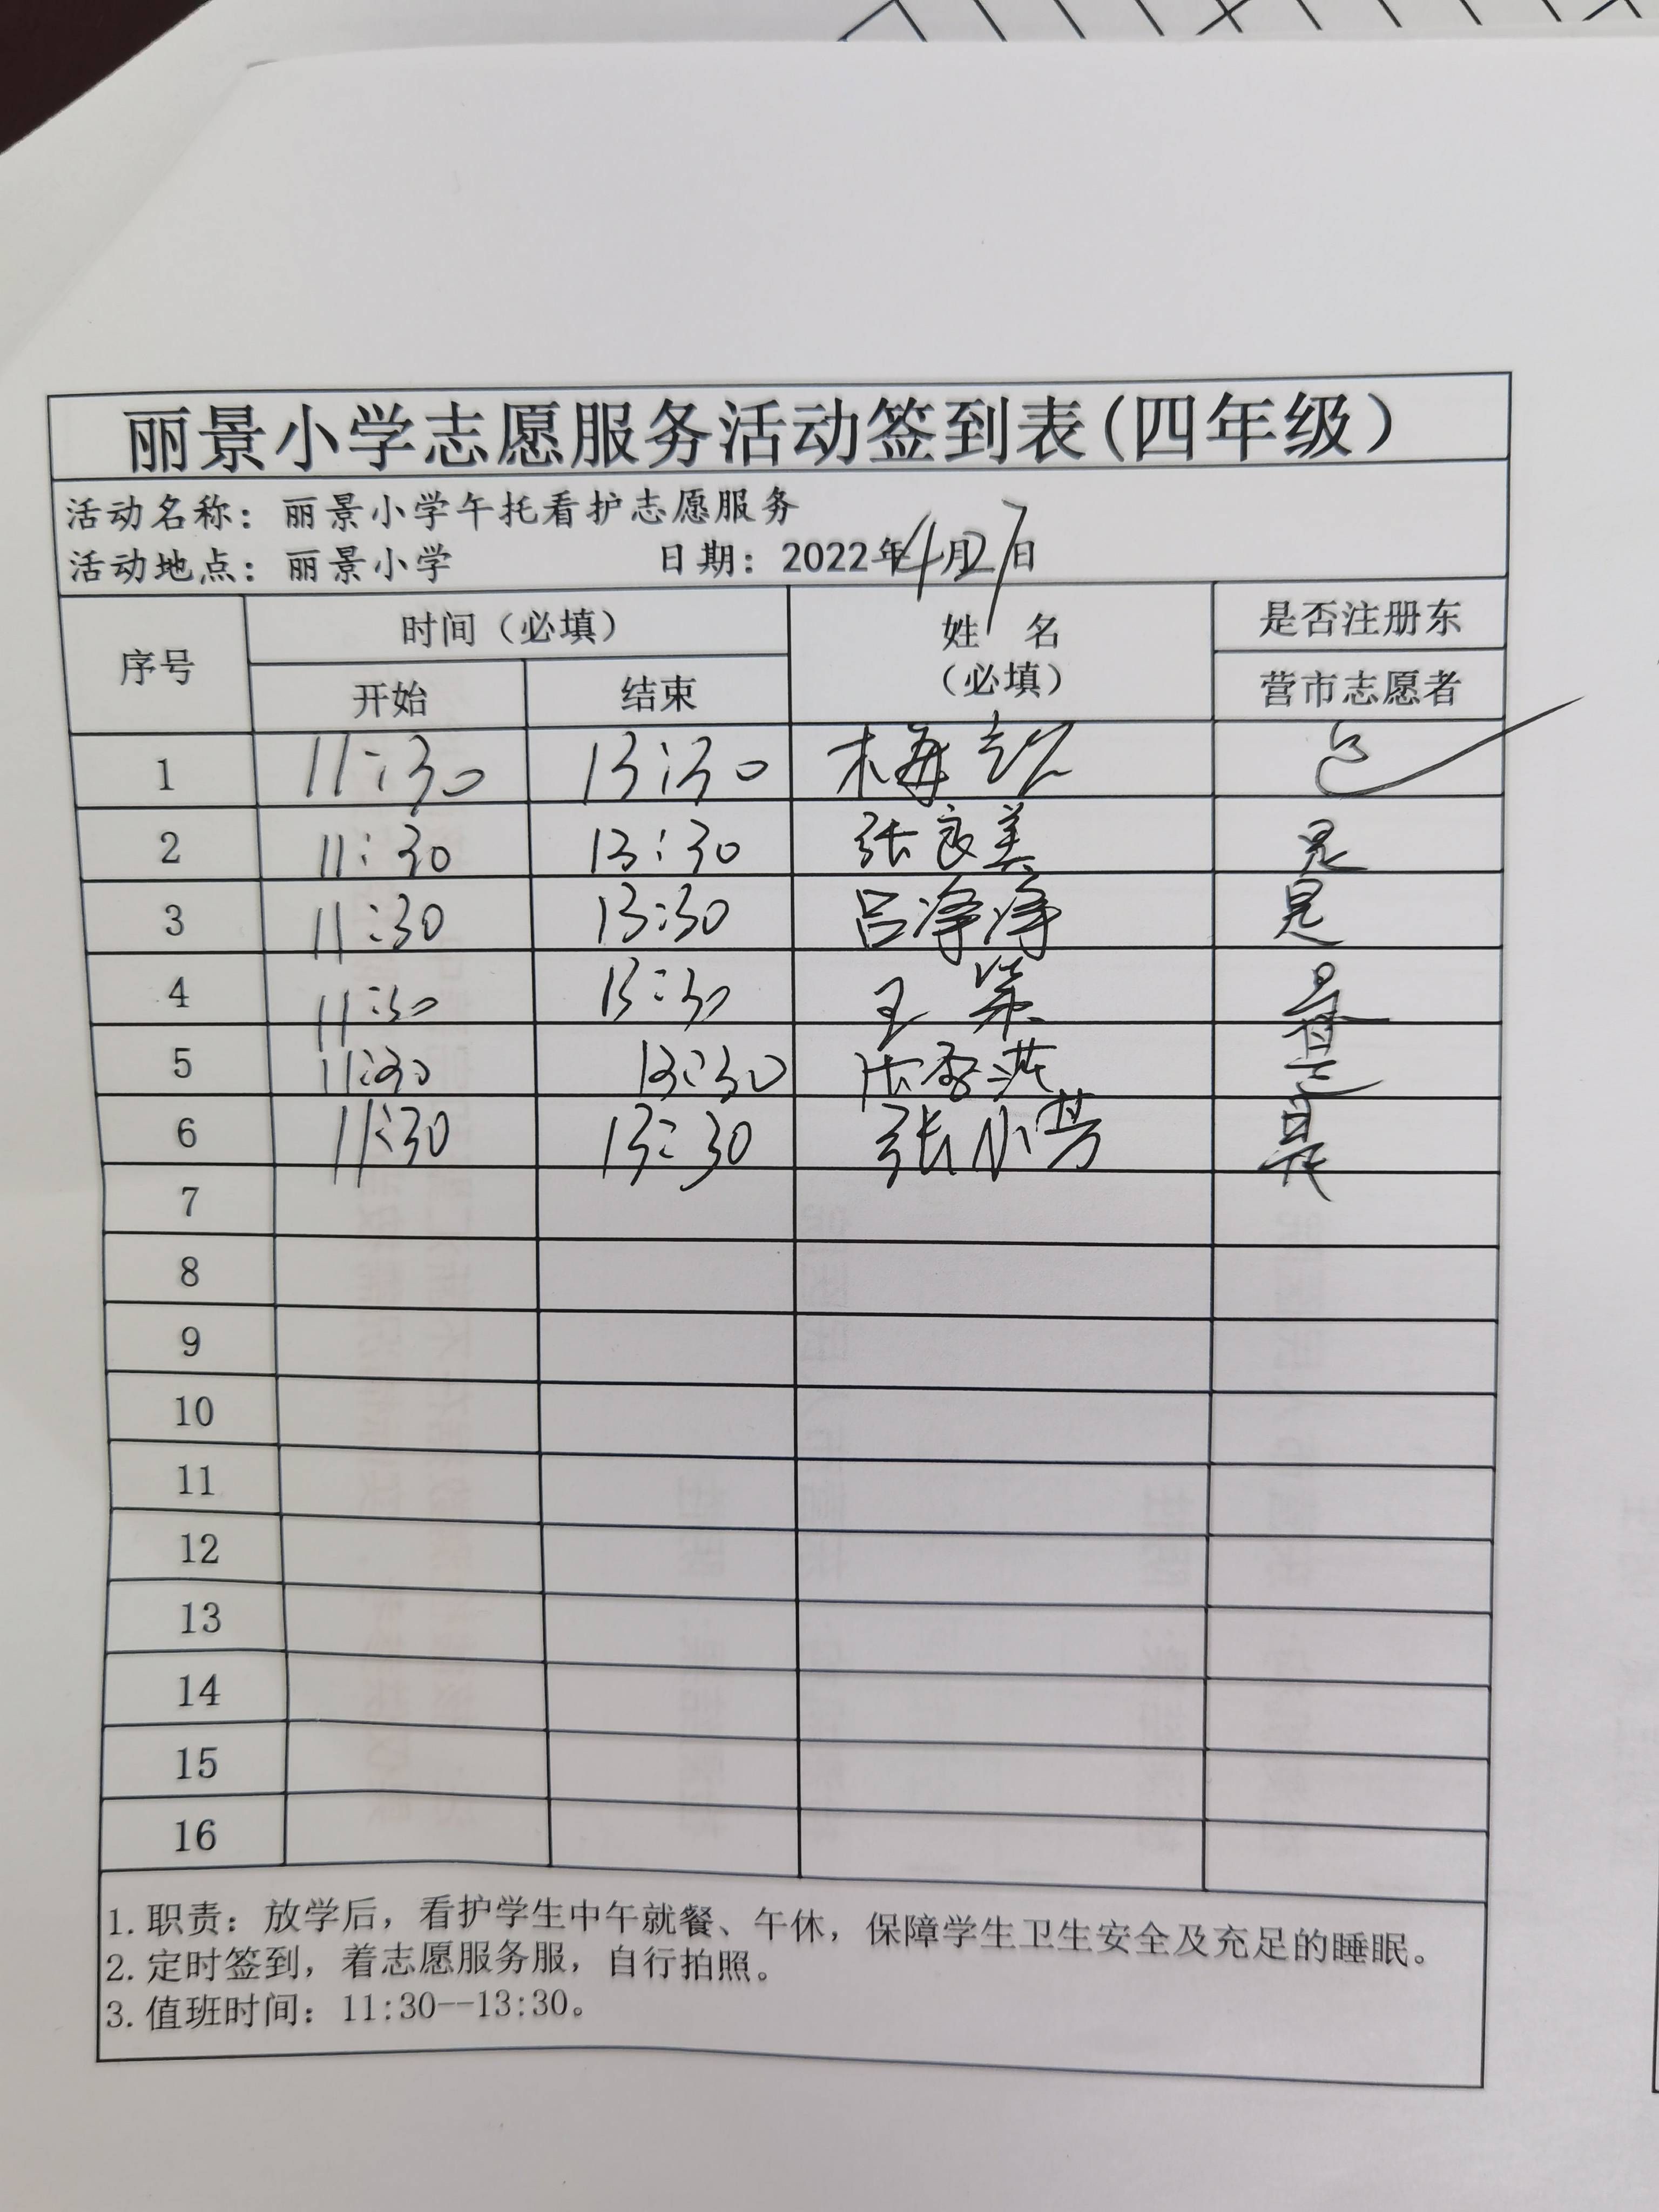 丽景小学志愿服务活动签到表(四年级)
活动名称：丽景小学午托看护志愿服务
活动地点：丽景小学 日期：2022年4月27日
序号 时间（必填） 姓 名（必填） 是否注册东营市志愿者
开始 结束
1 11:30 13:30 梅 是
2 11:30 13:30 张良美 是
3 11:30 13:30 吕净净 是
4 11:30 13:30 王 是
5 11:30 13:30 是
6 11:30 13:30 张小芳 是
7
8
9
10
11
12
13
14
15
16
1.职责：放学后，看护学生中午就餐、午休，保障学生卫生安全及充足的睡眠。
2.定时签到，着志愿服务服，自行拍照。
3.值班时间：11:30--13:30。